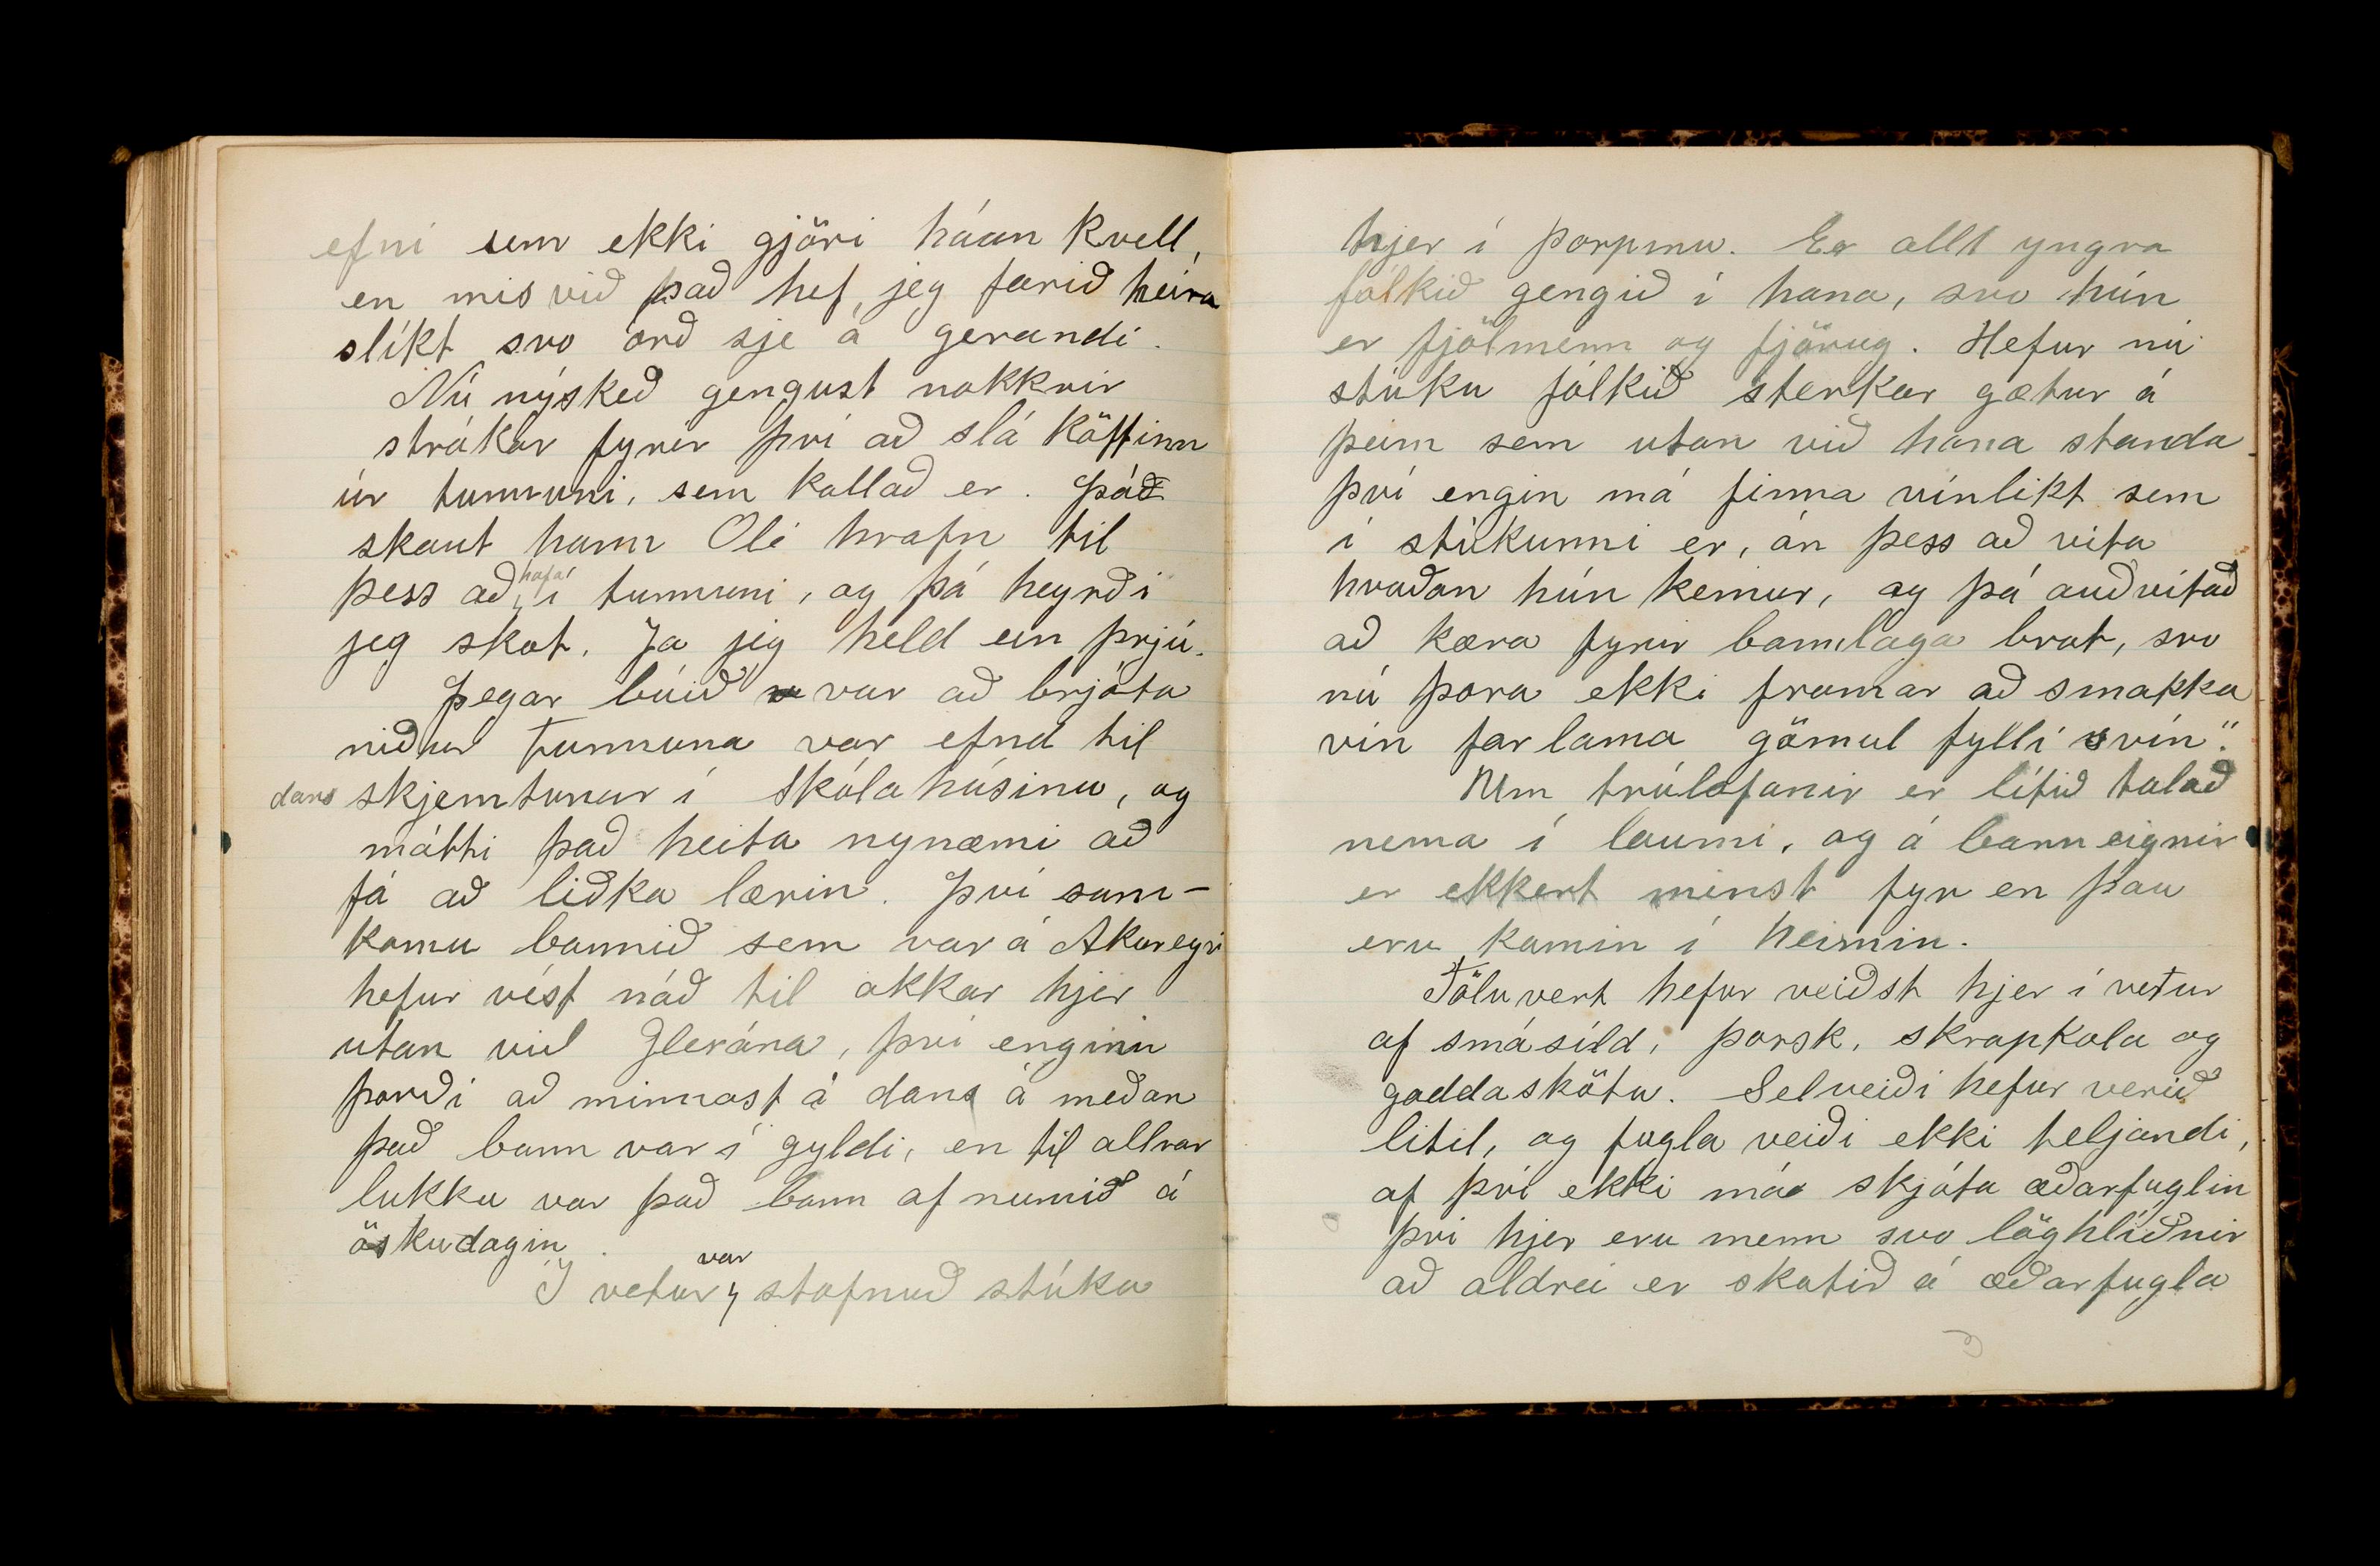 efni sem ekki gjöri háan kvell,
en mis við það hef jeg farið heira
slíkt svo orð sje á gerandi.
Nú nýskeð gengust nokkrir
strákar fyrir því að slá köttinn
úr tunnuni, sem kallað er. Þá
skaut hann Oli hrafn til
þess að hafa í tunnuni, og þá heyrði
jeg skot. Ja jeg held ein þrjú.
Þegar búið var að brjóta
niður tunnuna var efnd til
dans skjemtunar í skólahúsinu, og
mátti það heita nynæmi að
fá að liðka lærin. Því sam-
komu bannið sem var á Akureyri
hefur vést náð til okkar hjer
utan við Glerána, því enginn
þorði að minnast á dans á meðan
það bann var í gyldi, en til allrar
lukku var það bann af numið á
öskudagin.
Í vetur var stofnuð stúka
hjer í þorpinu. Er allt yngra
fólkið gengið í hana, svo hún
er fjölmenn og fjörug. Hefur nú
stúku fólkið sterkar gætur á
þeim sem utan við hana standa
því engin má finna vínlikt sem
í stúkunni er, án þess að vita
hvaðan hún kemur, og þá auðvitað
að kæra fyrir bannlaga brot, svo
nú þora ekki framar að smakka
vín farlama gömul fylli svín".
Um trúlofanir er lítið talað
nema í laumi, og á barneignir
er ekkert minst fyr en þau
eru komin í heimin.
Töluvert hefur veiðst hjer í vetur
af smásíld, þorsk, skrapkola og
gaddaskötu. Selveiði hefur verið
litil, og fugla veiði ekki teljandi,
af því ekki má skjóta æðarfuglin
því hjer eru menn svo löghlíðnir
að aldrei er skotið á æðarfugla